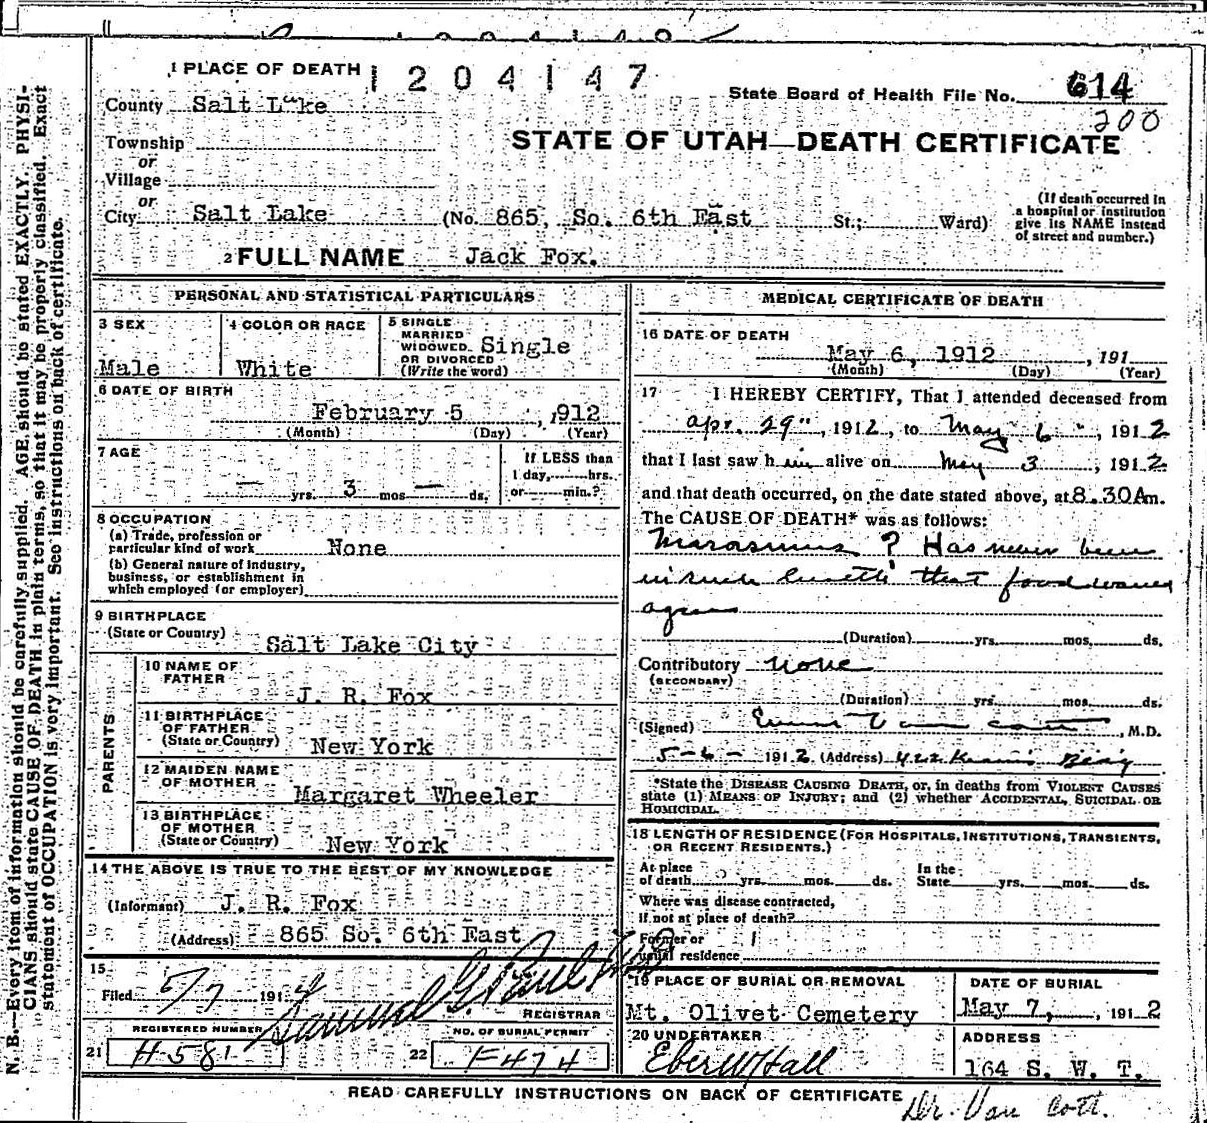 1 2 0 4 1 4 7
1 PLACE OF DEATH
State Board of Health File No. 614
200
County Salt Lake
STATE OF UTAH—DEATH CERTIFICATE
Township
or
Village
or
City Salt Lake (No. 865, So. 6th East St.; Ward)
(If death occurred in
a hospital or institution
give its NAME instead
of street and number.)
2 FULL NAME Jack Fox.
PERSONAL AND STATISTICAL PARTICULARS
3 SEX
Male
4 COLOR OR RACE
White
5 SINGLE
MARRIED
WIDOWED Single
OR DIVORCED
(Write the word)
6 DATE OF BIRTH
February 5, 1912
(Month) (Day) (Year)
7 AGE
— yrs. 3 mos — ds.
If LESS than
1 day, hrs.
or min.?
8 OCCUPATION
(a) Trade, profession or
particular kind of work None
(b) General nature of industry,
business, or establishment in
which employed (or employer)
9 BIRTHPLACE
(State or Country) Salt Lake City
PARENTS
10 NAME OF
FATHER
J. R. Fox
11 BIRTHPLACE
OF FATHER
(State or Country) New York
12 MAIDEN NAME
OF MOTHER
Margaret Wheeler
13 BIRTHPLACE
OF MOTHER
(State or Country) New York
14 THE ABOVE IS TRUE TO THE BEST OF MY KNOWLEDGE
(Informant) J. R. Fox
(Address) 865 So. 6th East
15
Filed 5/7 191
Samuel G. Paul
REGISTRAR
REGISTERED NUMBER
21 H581
NO. OF BURIAL PERMIT
22 F474
MEDICAL CERTIFICATE OF DEATH
16 DATE OF DEATH
May 6, 1912, 191
(Month) (Day) (Year)
17 I HEREBY CERTIFY, That I attended deceased from
apr. 29", 1912, to May 6", 1912
that I last saw him alive on May 3, 1912
and that death occurred, on the date stated above, at 8.30 Am.
The CAUSE OF DEATH* was as follows:
Marasmus ? Has never been
that food
agree
(Duration) yrs. mos. ds.
Contributory none
(SECONDARY)
(Duration) yrs. mos. ds.
(Signed) Van Cott, M.D.
5-6- 1912 (Address) 422 Kearns Bldg
*State the DISEASE CAUSING DEATH, or, in deaths from VIOLENT CAUSES
state (1) MEANS OF INJURY; and (2) whether ACCIDENTAL, SUICIDAL OR
HOMICIDAL.
18 LENGTH OF RESIDENCE (FOR HOSPITALS, INSTITUTIONS, TRANSIENTS,
OR RECENT RESIDENTS.)
At place
of death yrs. mos. ds.
In the
State yrs. mos. ds.
Where was disease contracted,
If not at place of death?
Former or
usual residence
19 PLACE OF BURIAL OR REMOVAL
Mt. Olivet Cemetery
DATE OF BURIAL
May 7, 1912
20 UNDERTAKER
Eber W Hall
ADDRESS
164 S. W. T.
READ CAREFULLY INSTRUCTIONS ON BACK OF CERTIFICATE
Dr. Van Cott.
N. B.—Every item of information should be carefully supplied. AGE should be stated EXACTLY. PHYSI-
CIANS should state CAUSE OF DEATH in plain terms, so that it may be properly classified. Exact
statement of OCCUPATION is very important. See instructions on back of certificate.